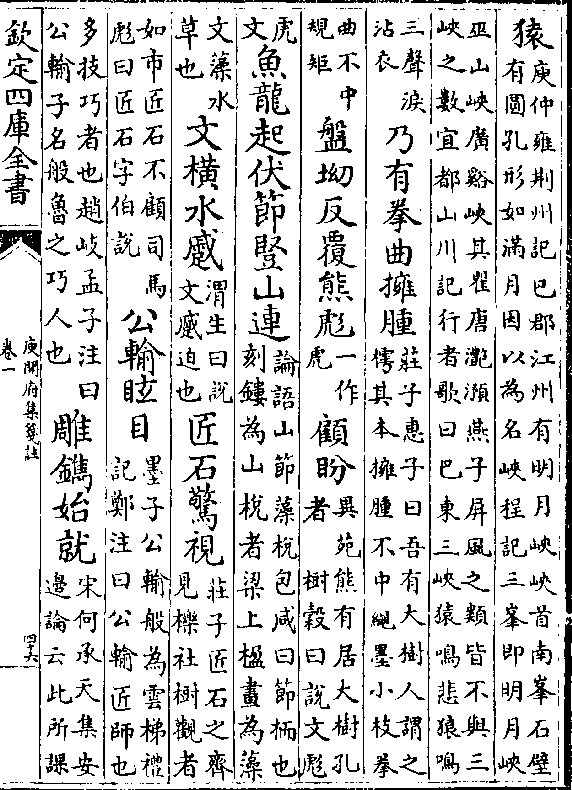 猿庾仲雍荆州記巴郡江州有明月峽峽首南峯石壁有圓孔形如滿月因以為名峽程記三峯即明月峽
巫山峽廣谿峽其瞿唐灔澦燕子屏風之類皆不與三峽之數宜都山川記行者歌曰巴東三峽猿鳴悲猿鳴
三聲淚沾衣乃有拳曲擁腫莊子惠子曰吾有大樹人謂之樗其本擁腫不中䋲墨小枝拳
曲不中規矩盤坳反覆熊彪一作虎顧盼異苑熊有居大樹孔者樹穀曰說文彪
虎文魚龍起伏節豎山連論語山節藻梲包咸曰節栭也刻鏤為山梲者梁上楹畫為藻
文藻水草也文橫水蹙渭生曰說文蹙迫也匠石驚視莊子匠石之齊見櫟社樹觀者
如市匠石不顧司馬彪曰匠石字伯說公輸眩目墨子公輸般為雲梯禮記鄭注曰公輸匠師也
多技巧者也趙岐孟子注曰公輸子名般魯之巧人也雕鐫始就宋何承天集安邊論云此所課
欽定四庫全書
庾開府集箋註
卷一
四六